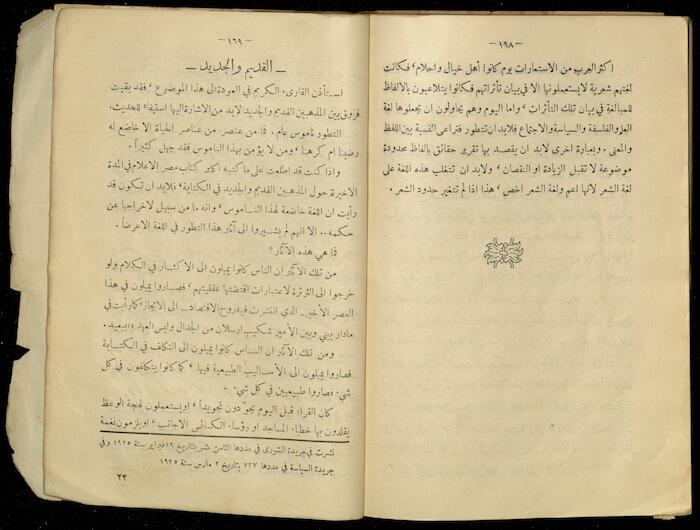 — ١٦٨ —
اكثر العرب من الاستعارات يوم كانوا أهل خيال واحلام، فكانت
لغتهم شعرية لايستعملونها الا في بيان تأثراتهم فكانوا يتلاعبون بالالفاظ
للمبالغة في بيان تلك التأثرات، واما اليوم وهم يحاولون ان يجعلوها لغة
العلم والفلسفة والسياسة والاجتماع فلابد ان تتطور فتراعى النسبة بين اللفظ
والمعنى. وبعبارة اخرى لابد ان يقصد بها تقرير حقائق بالفاظ محدودة
موضوعة لا تقبل الزيادة او النقصان، ولابد ان تتغلب هذه اللغة على
لغة الشعر لانها اعم ولغة الشعر اخص، هذا اذا لم تتغير حدود الشعر.
— ١٦٩ —
— القديم والجديد —
استأذن القارىء الكريم في العودة الى هذا الموضوع، فقد بقيت
فروق بين المذهبين القديم والجديد لابد من الاشارة اليها استيفاء للحديث.
التطور ناموس عام. فما من عنصر من عناصر الحياة الا خاضع له
رضينا ام كرهنا، ومن لا يؤمن بهذا الناموس فقد جهل كثيراً.
واذا كنت قد اطلعت على ما كتبه اكابر كتاب مصر الاعلام في المدة
الاخيرة حول المذهبين القديم والجديد في الكتابة، فلابد ان تكون قد
رأيت ان اللغة خاضعة لهذا الناموس، وانه ما من سبيل لاخراجها عن
حكمه.. الا انهم لم يشيروا الى آثار هذا التطور في اللغة الا عرضاً.
فما هي هذه الآثار؟
من تلك الآثار ان الناس كانوا يميلون الى الاكثار في الكلام ولو
خرجوا الى الثرثرة لاعتبارات اقتضتها عقليتهم، فصاروا يميلون في هذا
العصر الأخير الذي انتشرت فيه روح الاقتصاد الى الايجاز، كما رأيت في
مادار بيني وبين الأمير شكيب ارسلان من الجدال وليس العهد به ببعيد.
ومن تلك الآثار ان الناس كانوا يميلون الى التكلف في الكتابة
فصاروا يميلون الى الأساليب الطبيعية فيها، كما كانوا يتكلفون في كل
شيء فصاروا طبيعيين في كل شيء.
كان القراء قبل اليوم يجودون تجويداً، او يستعملون لهجة الوعظ
يقلدون بها خطباء المساجد او رؤساء الكنائس الاجانب، او يلزمون نغمة
نشرت في جريدة الشورى في عددها الثامن عشر بتاريخ ١٩ فبراير سنة ١٩٢٥ وفي
جريدة السياسة في عددها ٧٢٧ بتاريخ ٢ مارس سنة ١٩٢٥
٢٢